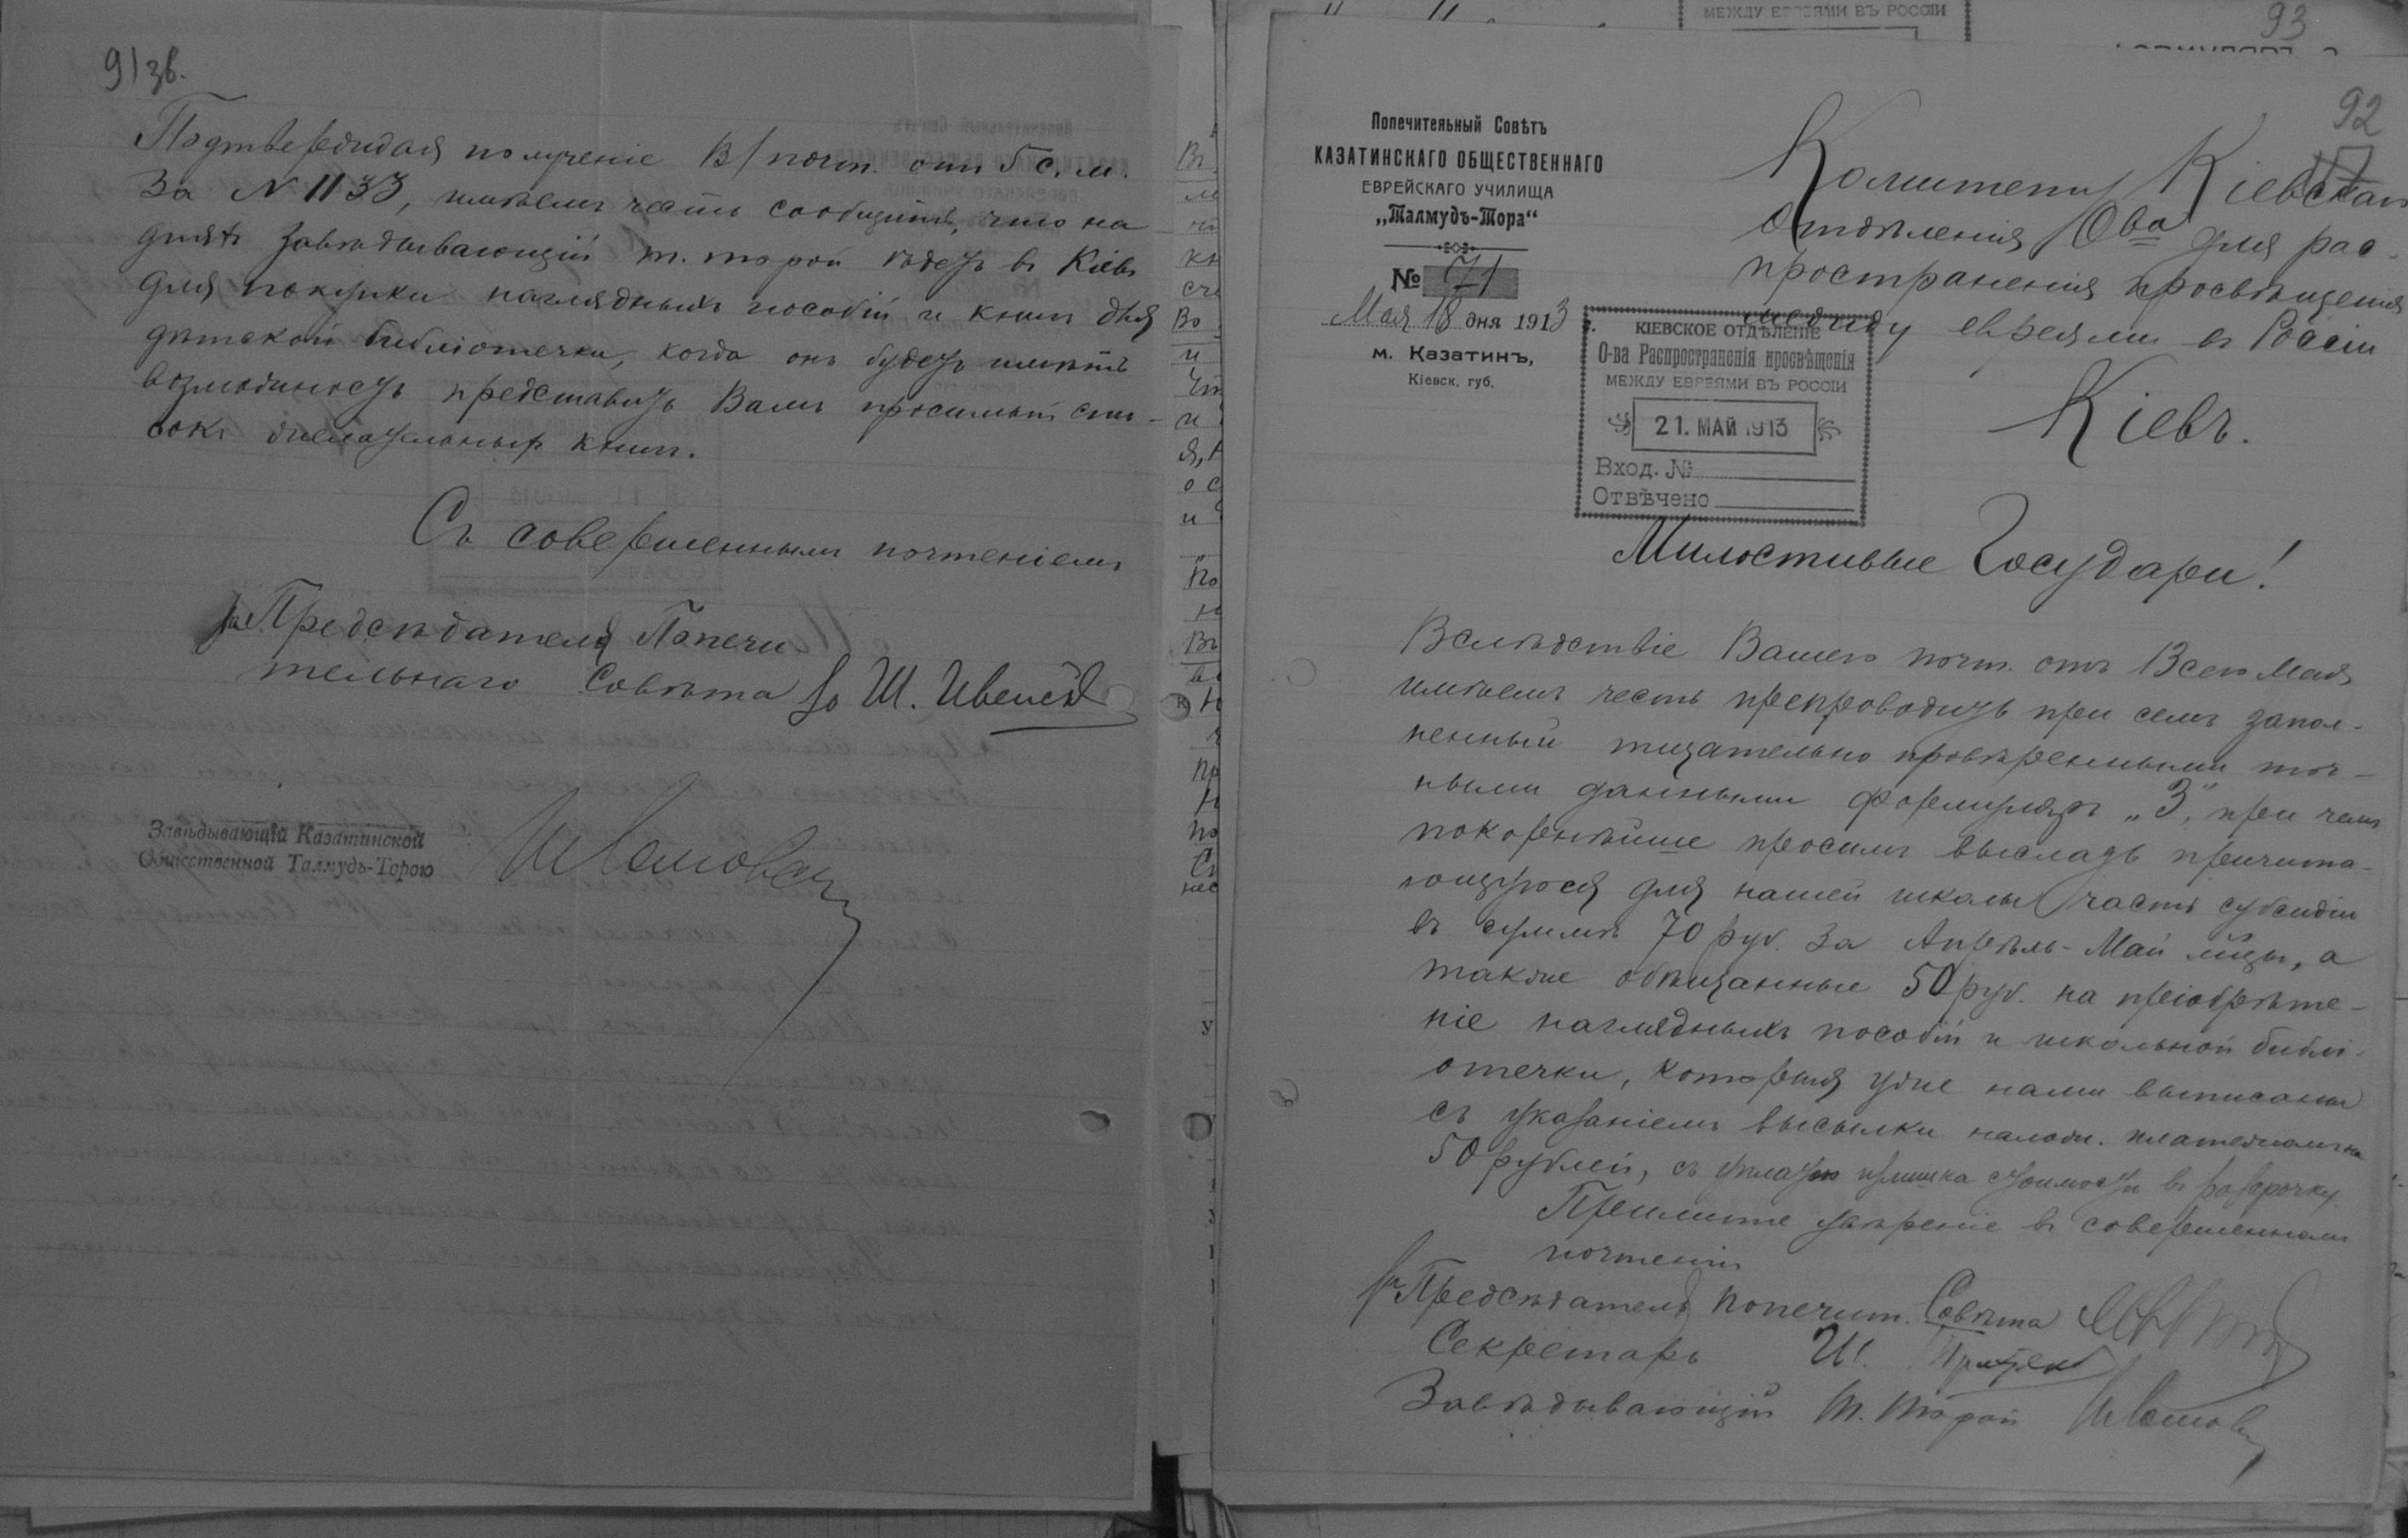 91 зв.
Подтверждая полученіе В/почт. отъ 5 с. м.
за N 1133, имѣемъ честь сообщить, что на
дняхъ завѣдывающій т. торой ѣдетъ въ Кіевъ
для покупки наглядныхъ пособій и книгъ для
дѣтской библіотечки, когда онъ будетъ имѣть
возможность представить Вамъ просимый спи-
сокъ желательныхъ книгъ.
Съ совершеннымъ почтеніемъ
за Предсѣдателя Попечи
тельнаго Совѣта Ш.
Завѣдывающій Казатинской
Общественной Талмудъ-Торою
МЕЖДУ ЕВРЕЯМИ ВЪ РОССІИ
93
92
Попечительный Совѣтъ
КАЗАТИНСКАГО ОБЩЕСТВЕННАГО
ЕВРЕЙСКАГО УЧИЛИЩА
„Талмудъ-Тора“
№ 71
Мая 18 дня 1913 г.
м. Казатинъ,
Кіевск. губ.
Комитету Кіевскаго
Отдѣленія О-ва для рас-
пространенія просвѣщенія
между евреями въ Россіи
Кіевъ.
КІЕВСКОЕ ОТДѢЛЕНІЕ
О-ва Распространенія просвѣщенія
МЕЖДУ ЕВРЕЯМИ ВЪ РОССІИ
21. МАЙ 1913
Вход. №
Отвѣчено
Милостивые Государи!
Вслѣдствіе Вашего почт. отъ 13 сего Мая,
имѣемъ честь препроводить при семъ запол-
ненный тщательно провѣренными точ-
ными данными формуляръ „З“, при чемъ
покорнѣйше просимъ выслать причита-
ющуюся для нашей школы часть субсидіи
въ суммѣ 70 руб. за Апрѣль-Май мцы, а
также обѣщанные 50 руб. на пріобрѣте-
ніе наглядныхъ пособій и школьной библі-
отечки, которыя уже нами выписаны
съ указаніемъ высылки налож. платежомъ на
50 рублей, съ уплатою излишка стоимости въ разсрочку.
Примите увѣреніе въ совершенномъ
почтеніи
за Предсѣдателя попечит. Совѣта
Секретарь Ш.
Завѣдывающій т. торой